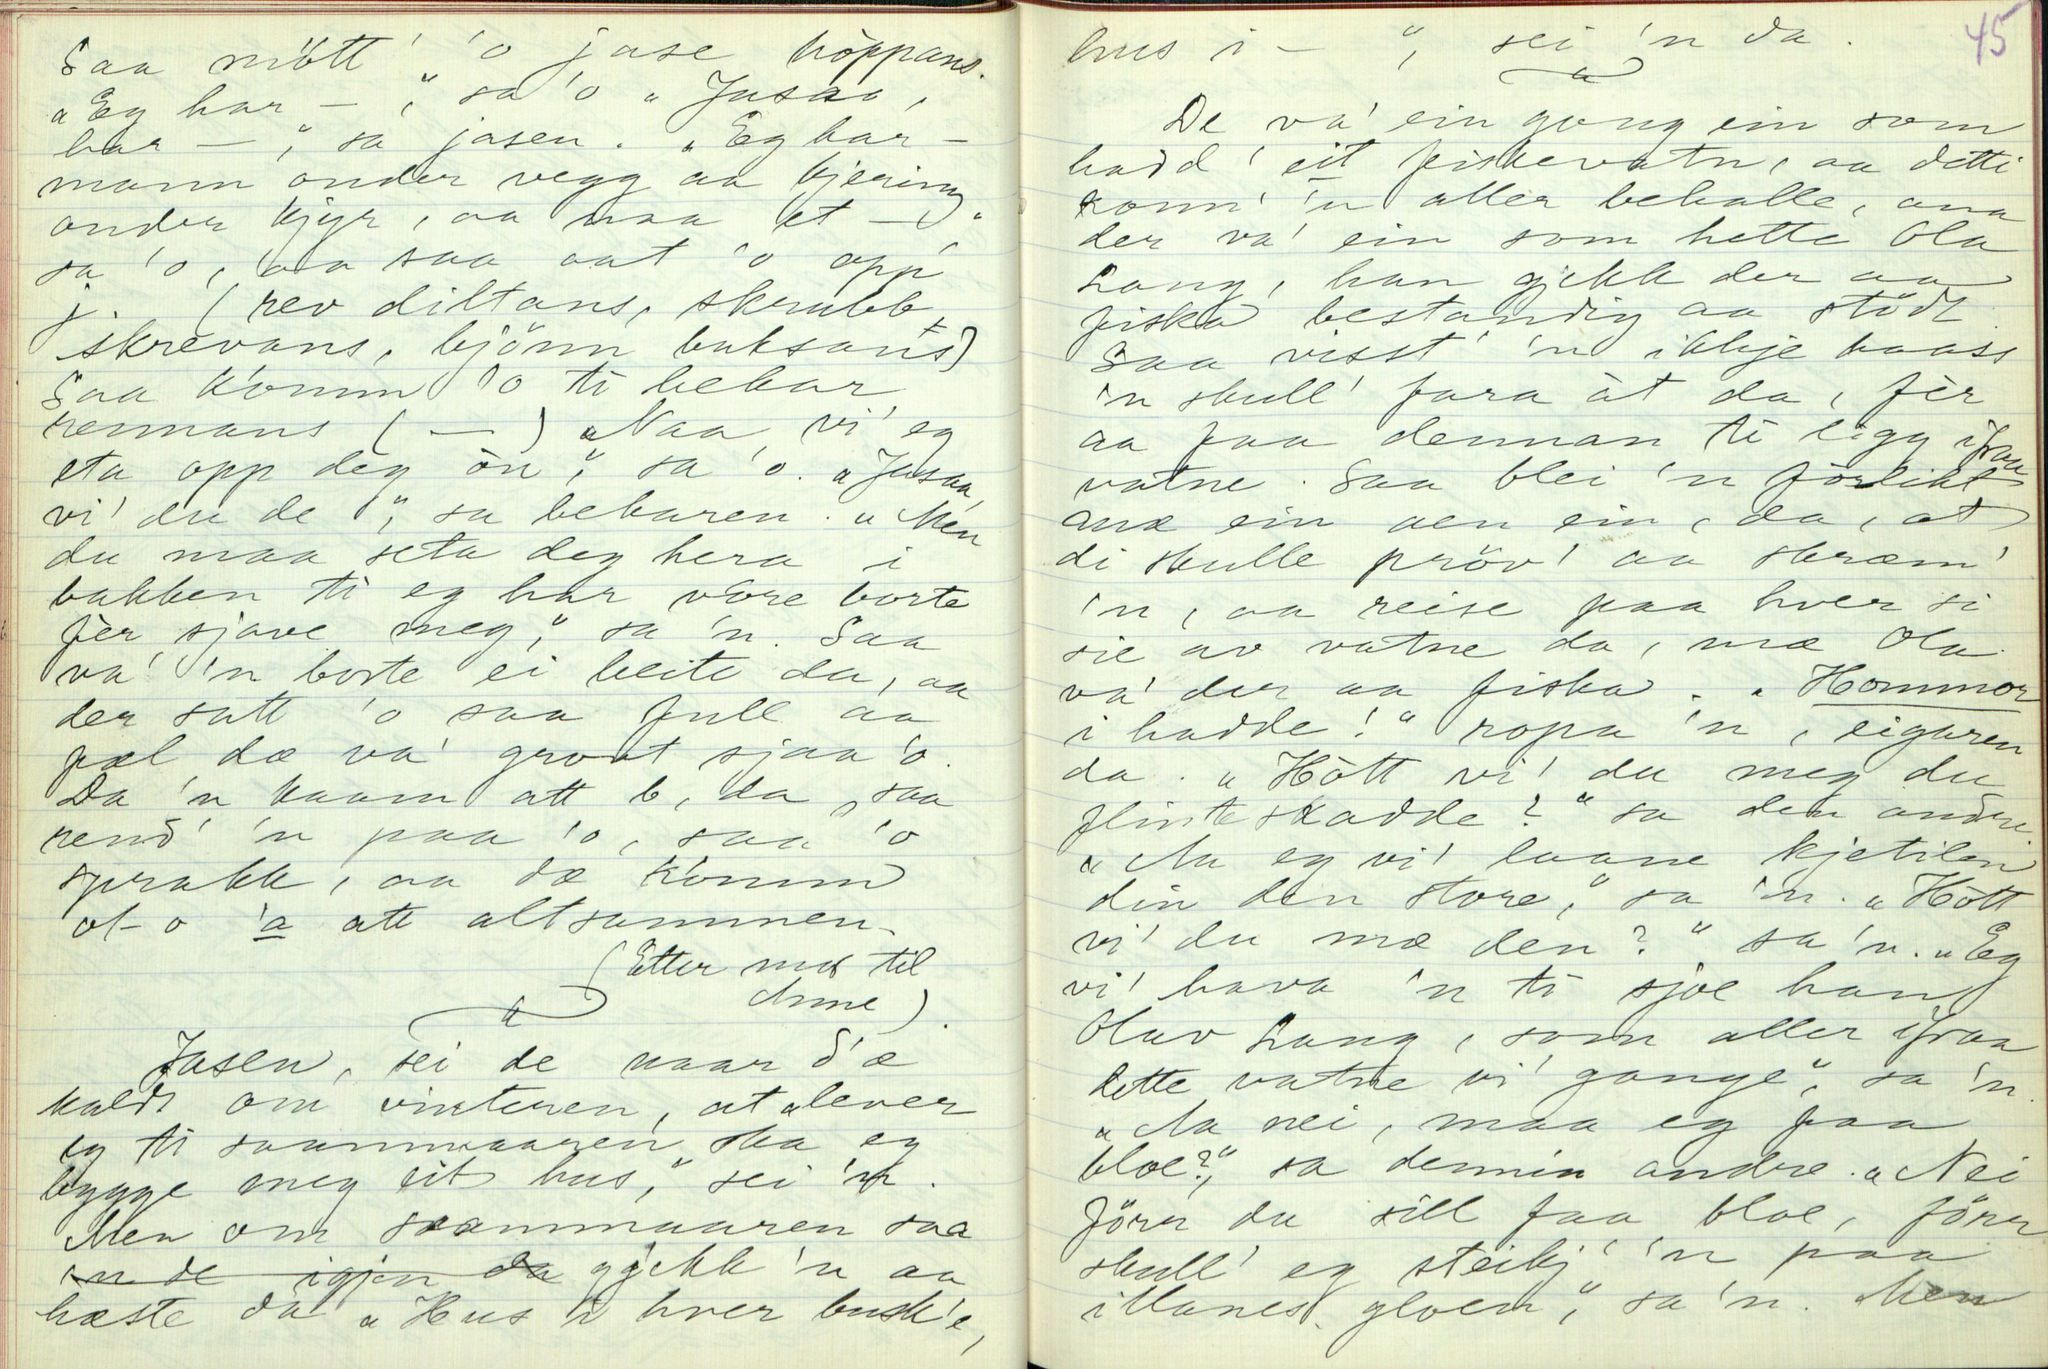 Saa mött' 'o jase höppans.
„Eg har – ," sa 'o „Jasaa,
har – ," sa jasen. „Eg har –
mann onder vegg aa kjering
onder kjyr, aa naa et – "
sa 'o, aa saa aat 'o opp
j. (rev diltans, skrubb
skrevans, björnn buksans)
Saa komm 'o ti bekar
rennans ( — ) „Naa vi' eg
eta opp deg òn", sa 'o. „Jasaa,
vi' du de ", sa bekaren. „Men
du maa seta deg hera i
bakken ti eg har vore borte
fèr sjave meg," sa 'n. Saa
va' 'n borte ei leite da, aa
der satt 'o saa full aa
fæl dæ va' grovt sjaa 'o.
Da 'n kaam att b, da, saa
rend' 'n paa 'o, saa 'o
sprakk, aa dæ komm
ot- o 'a att altsammen.
(Etter mor til
Anne).
Jasen, sei de naar d'æ
kaldt om vinteren, at „lever
eg ti saammaaren ska eg
bygge meg eit hus," sei 'n.
Men om saammaaren saa
gjekk 'n aa
hæste da „Hus i hver busk'e,
45
hus i – ", sei 'n da.
De va' ein gong ein som
hadd' eit fiskevatn, aa detti
konn' 'n aller behalle, ana
der va' ein som hette Ola
Lang, han gjekk der aa
fiska bestandig aa stödt.
Saa visst' 'n ikkje haass
'n skull' fara àt da, fèr
aa faa dennan ti ligg ifraa
vatne. Saa blei 'n forlikt
mæ ein aen ein, da, at
di skulle pröv' aa skræm'
'n, aa reise paa hver si
sie av vatne da, mæ Ola
va' der aa fiska. „Hommor
i hadde!" ropa 'n, eigaren
da. „Hòtt vi' du meg du
flinteskadde?" sa den andre
„Aa eg vi' laane kjetilen
din den store," sa 'n. „Hòtt
vi' du mæ den?" sa 'n. „Eg
vi' hava 'n ti sjoe han
Olav Lang, som aller ifraa
dette vatne vi' gange", sa 'n.
„Aa nei, maa eg faa
bloe?," sa dennin andre. „Nei
förr du sill faa bloe, förr
skull' eg steikj' 'n paa
illanes gloen," sa 'n. Men